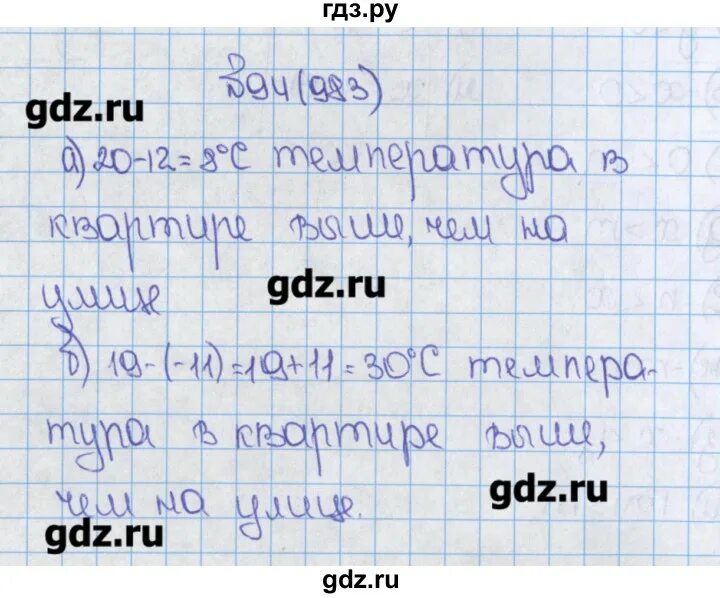 гдз.ру
№94(983)
gdz.ru
а) 20-12=8°C температура в
квартире выше, чем на
gdz.ru
улице
б) 19-(-11)=19+11=30°C темпера-
тура в квартире выше,
gdz.ru
чем на улице.
gdz.ru
gdz.ru